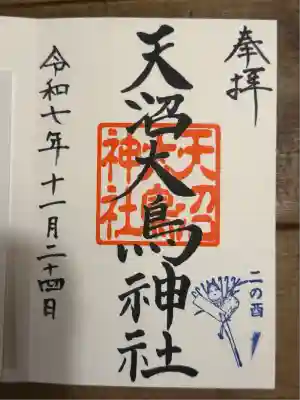 奉拝
天沼大鳥神社
天沼
神社
二の酉
令和七年十一月二十四日